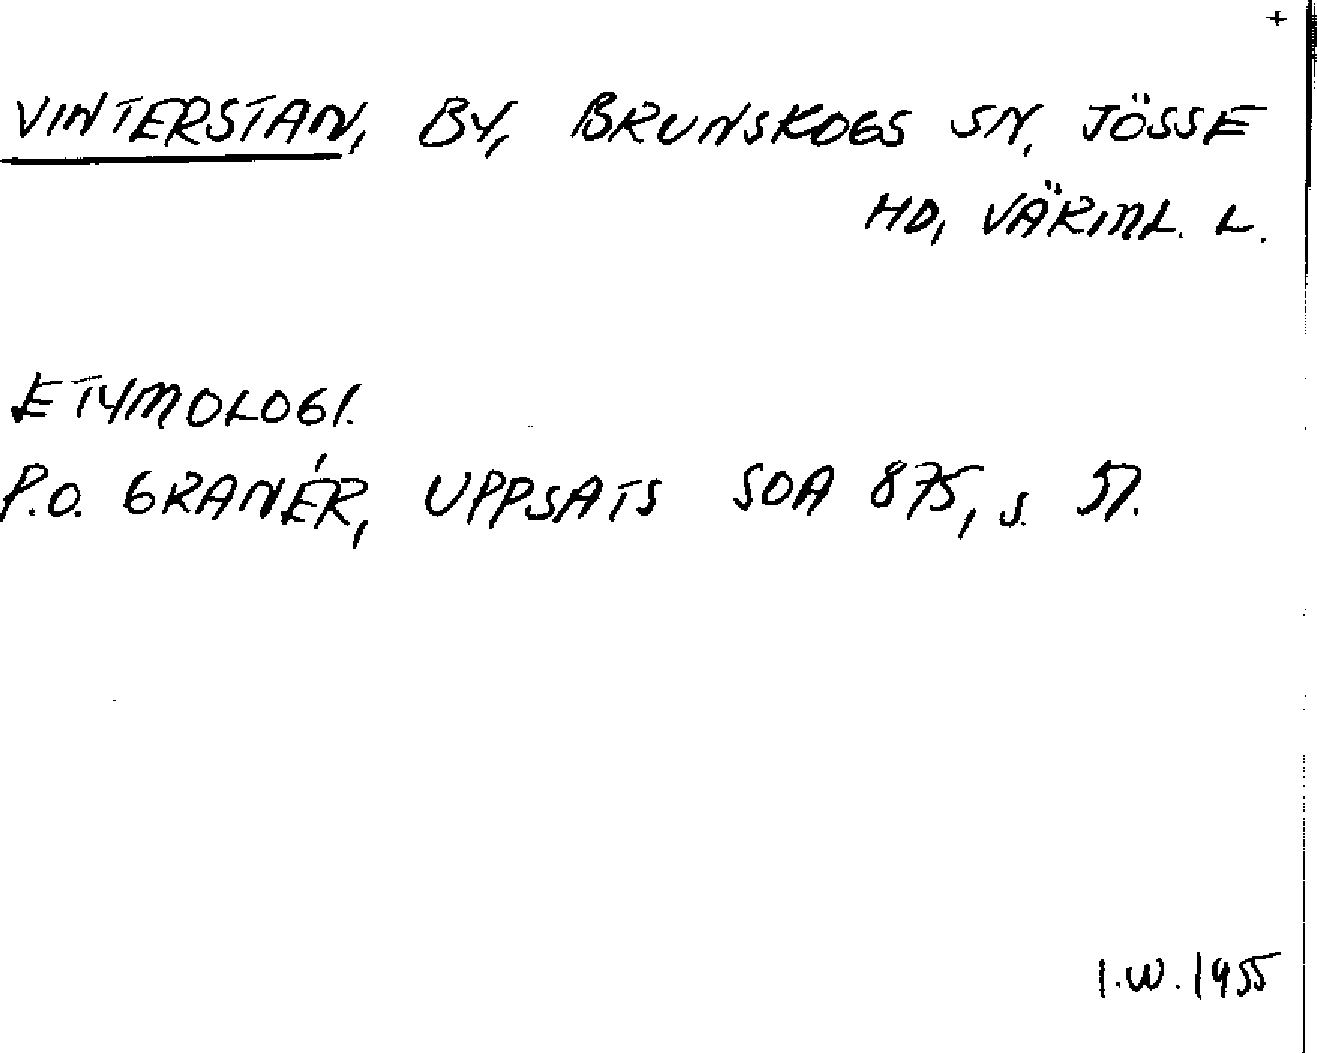 +
VINTERSTAN, BY, BRUNSKOGS SN, JÖSSE
HD, VÄRML. L.
ETYMOLOGI.
P.O. GRANÉR, UPPSATS SOA 875, S. 57.
I.W. 1955